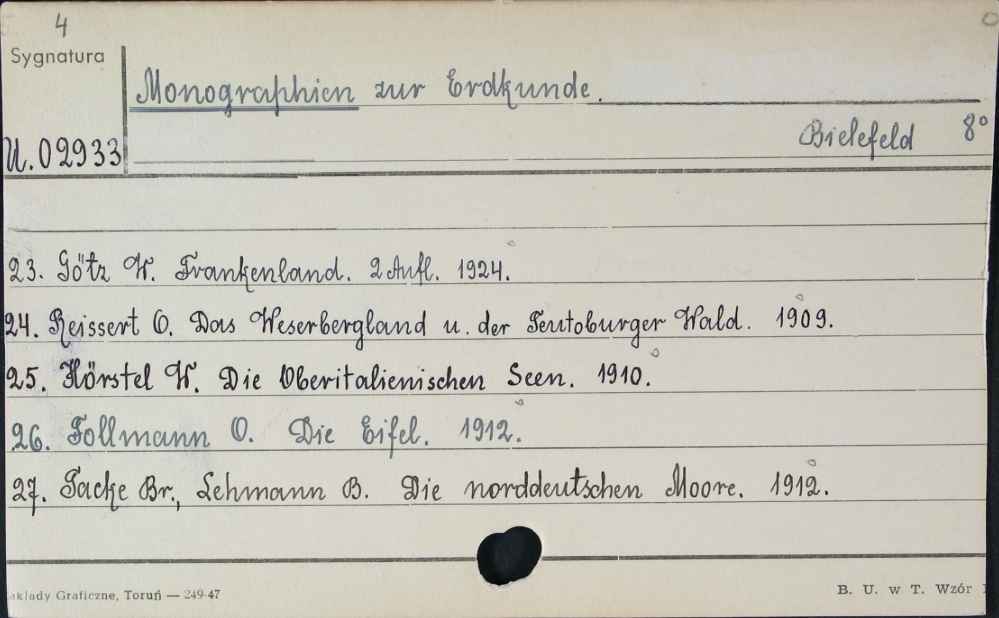 4
Sygnatura
Monographien zur Erdkunde.
Bielefeld 8°
U. 02933
23. Götz W. Frankenland. 2 Aufl. 1924.
24. Reissert O. Das Weserbergland u. der Teutoburger Wald. 1909.
25. Hörstel W. Die Oberitalienischen Seen. 1910.
26. Follmann O. Die Eifel. 1912.
27. Tacke Br., Lehmann B. Die norddeutschen Moore. 1912.
akłady Graficzne, Toruń — 249-47
B. U. w T. Wzór